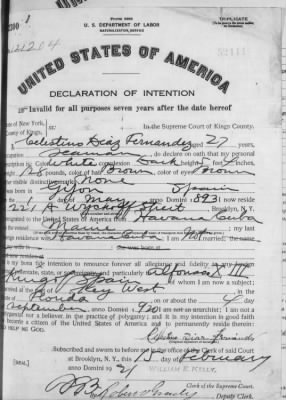 Form 2202
U. S. DEPARTMENT OF LABOR
NATURALIZATION SERVICE
TRIPLICATE
No. 21204
UNITED STATES OF AMERICA
DECLARATION OF INTENTION
Invalid for all purposes seven years after the date hereof
State of New York,
County of Kings, ss: In the Supreme Court of Kings County.
I, Celestino Diaz Fernandez, aged 27 years,
occupation Seaman, do declare on oath that my personal
description is: Color White, complexion Dark, height 5 feet inches,
weight 128 pounds, color of hair Brown, color of eyes Brown
other visible distinctive marks None
I was born in Gijon Spain
on the day of May, anno Domini 1893; I now reside
at 221 A Wyckoff Street Brooklyn, N.Y.
I emigrated to the United States of America from Havana Cuba
on the vessel Maine; my last
foreign residence was Havana Cuba; I am Not married; the name
was born at
It is my bona fide intention to renounce forever all allegiance and fidelity to any foreign
prince, potentate, state, or sovereignty, and particularly to Alfonso XIII
King of Spain, of whom I am now a subject;
I arrived at the port of Key West
State of Florida, on or about the 4 day
of September, anno Domini 1920; I am not an anarchist; I am not a
polygamist nor a believer in the practice of polygamy; and it is my intention in good faith
to become a citizen of the United States of America and to permanently reside therein:
SO HELP ME GOD.
Celestino Diaz Fernandez
Subscribed and sworn to before me in the office of the Clerk of said Court
at Brooklyn, N. Y., this day of February
anno Domini 1921
[SEAL] WILLIAM E. KELLY
Clerk of the Supreme Court.
By Deputy Clerk.